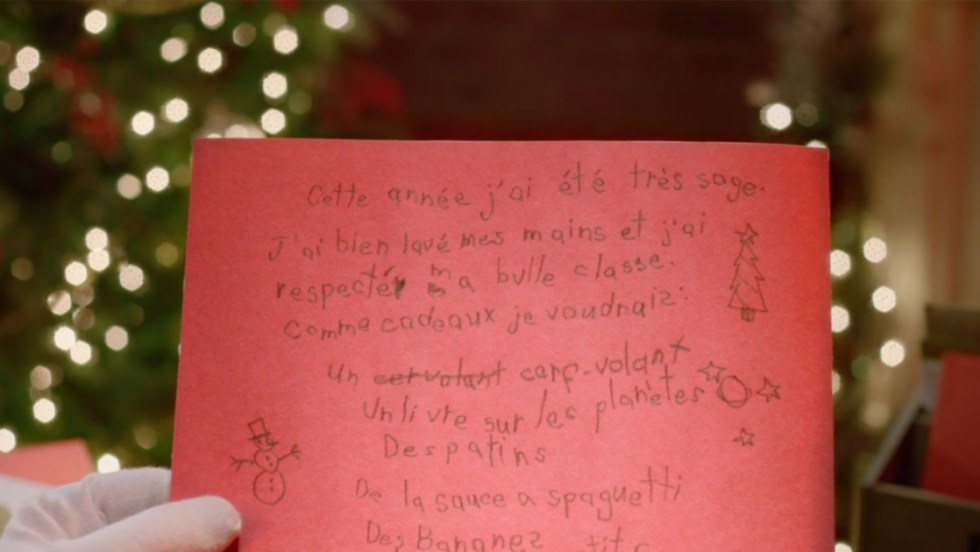 Cette année j'ai été très sage.
J'ai bien lavé mes mains et j'ai
respecté ma bulle classe.
Comme cadeaux je voudrais:
Un cervolant cerf-volant
Un livre sur les planètes
Des patins
De la sauce a spaguetti
Des Bananes